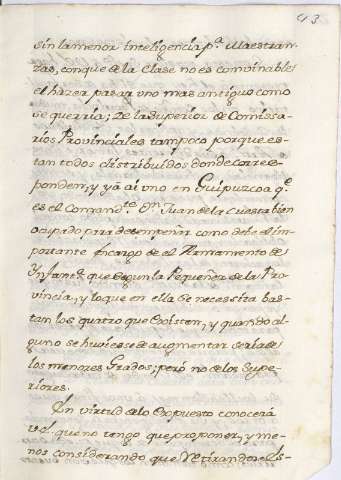 43
sin la menor inteligencia p.ª Maestran-
zas, conque de la Clase no es convinable
el hazer pasar uno mas antiguo como
se querria; De la superior de Comissa-
rios Provinciales tampoco porque es-
tan todos distribuidos donde corres-
ponden, y yá ai uno en Guipuzcoa q.e
es el Comand.te D.n Juan de la Cuesta bien
ocupado para desempeñar como debe el im-
portante Encargo de el Armamento de
Ynfant.ª que segun la Pequeñez de la Pro-
vincia, y lo que en ella se necessita bas-
tan los quatro que Existen, y quando al-
guno se huviese de augmentar seria de
los menores Grados; peró no de los Supe-
riores.
En virtud de lo Expuesto conocerá
que no tengo que proponer, y me-
nos considerando que Retirandose